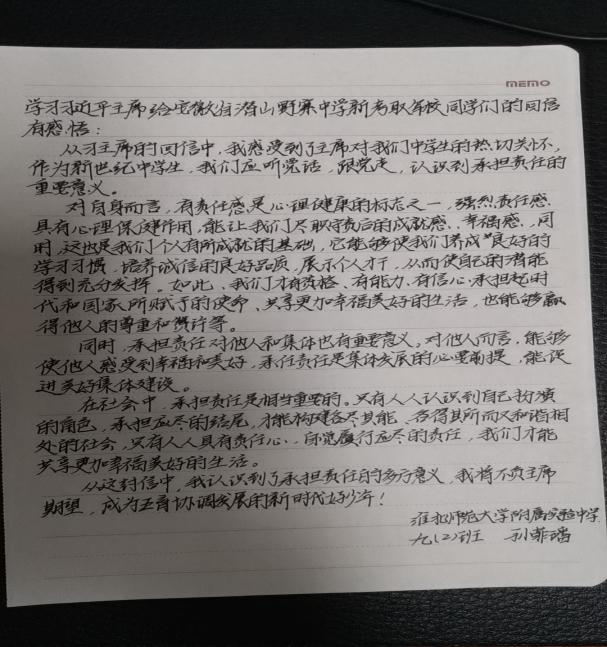 MEMO
学习习近平主席给安徽省潜山野寨中学新考取军校同学们的回信
有感悟：
从习主席的回信中，我感受到了主席对我们中学生的热切关怀，
作为新世纪中学生，我们应听党话，跟党走，认识到承担责任的
重要意义。
对自身而言，有责任感是心理健康的标志之一，强烈责任感
具有心理保健作用，能让我们尽职守责后的成就感、幸福感，同
时，这也是我们个人有所成就的基础，它能够使我们养成良好的
学习习惯，培养诚信的良好品质，展示个人才干，从而使自己的潜能
得到充分发挥。如此，我们才有资格、有能力、有信心承担起时
代和国家所赋予的使命、共享更加幸福美好的生活，也能够赢
得他人的尊重和赞许等。
同时，承担责任对他人和集体也有重要意义，对他人而言，能够
使他人感受到幸福和美好，承任责任是集体发展的必要前提，能促
进美好集体建设。
在社会中，承担责任是相当重要的。只有人人认识到自己扮演
的角色，承担应尽的责任，才能构建各尽其能、各得其所而又和谐相
处的社会，只有人人具有责任心、自觉履行应尽的责任，我们才能
共享更加幸福美好的生活。
从这封信中，我认识到了承担责任的多方意义，我将不负主席
期望，成为五育协调发展的新时代好少年！
淮北师范大学附属实验中学
九（2）班 孙菲璠